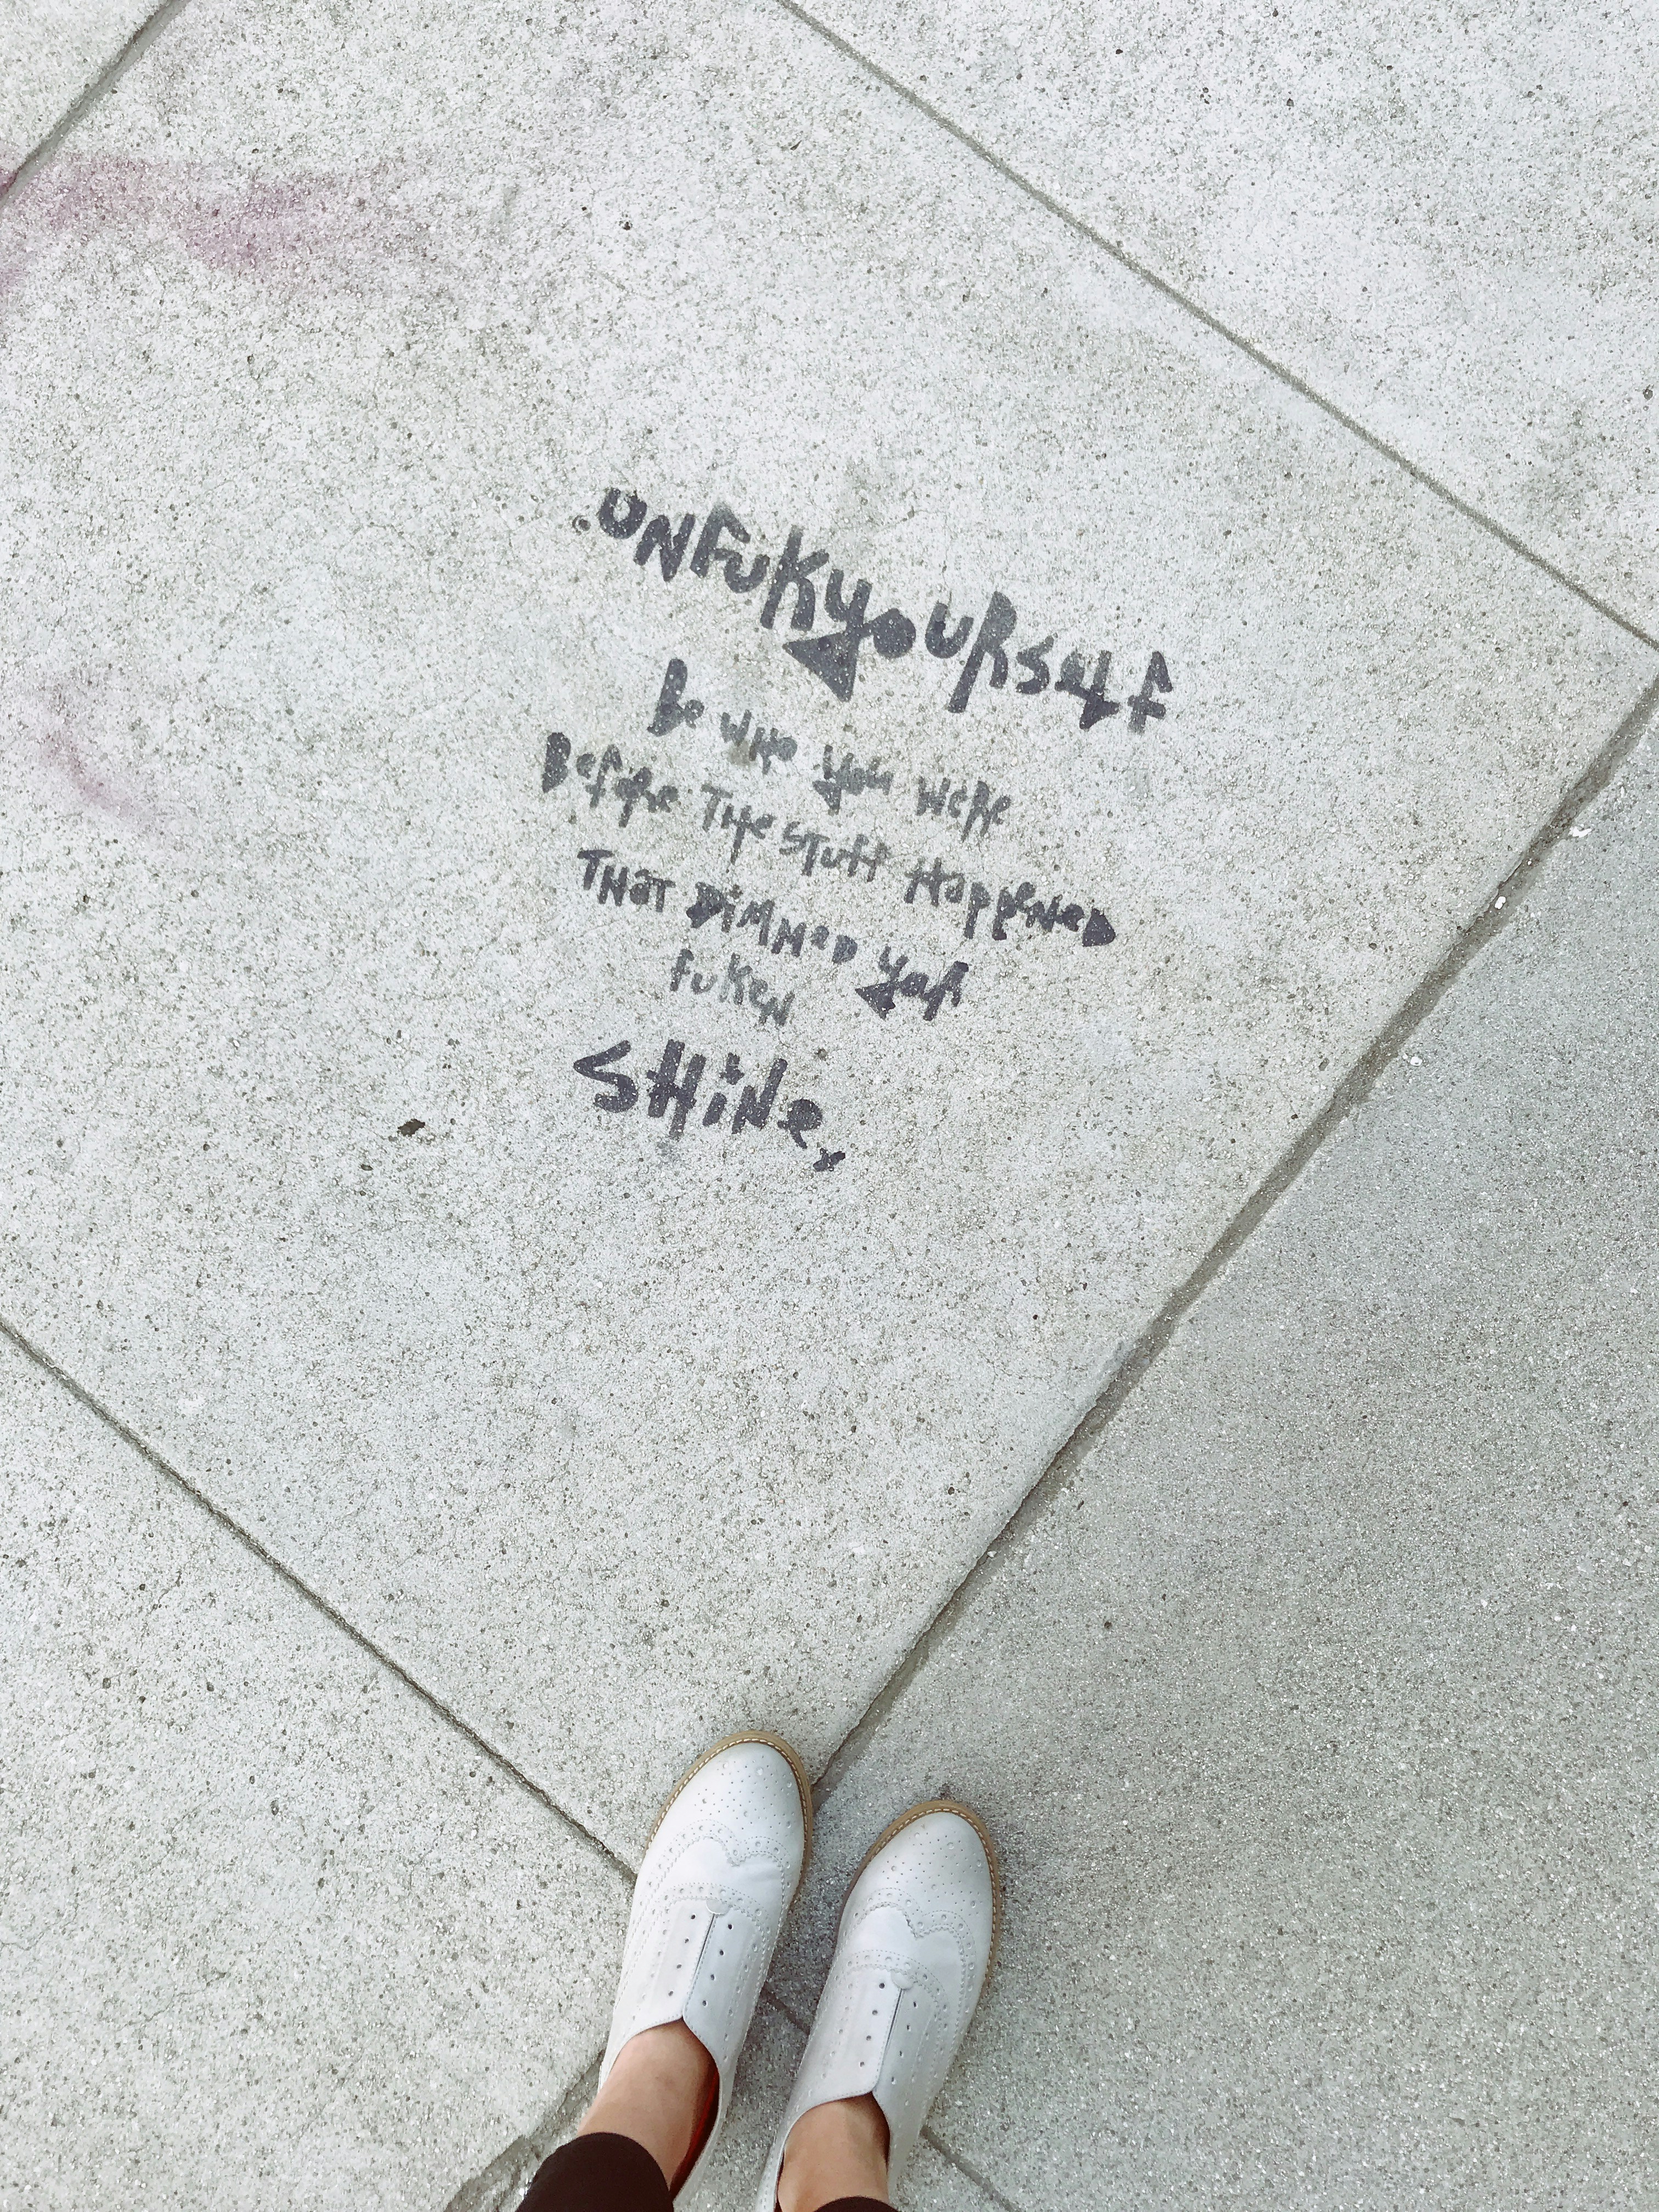 UNFUKyoURself
Be WHo you WeRe
BefoRe THe STuff HappeNeD
THaT DiMMeD yoR
fuKeN
SHiNe,x